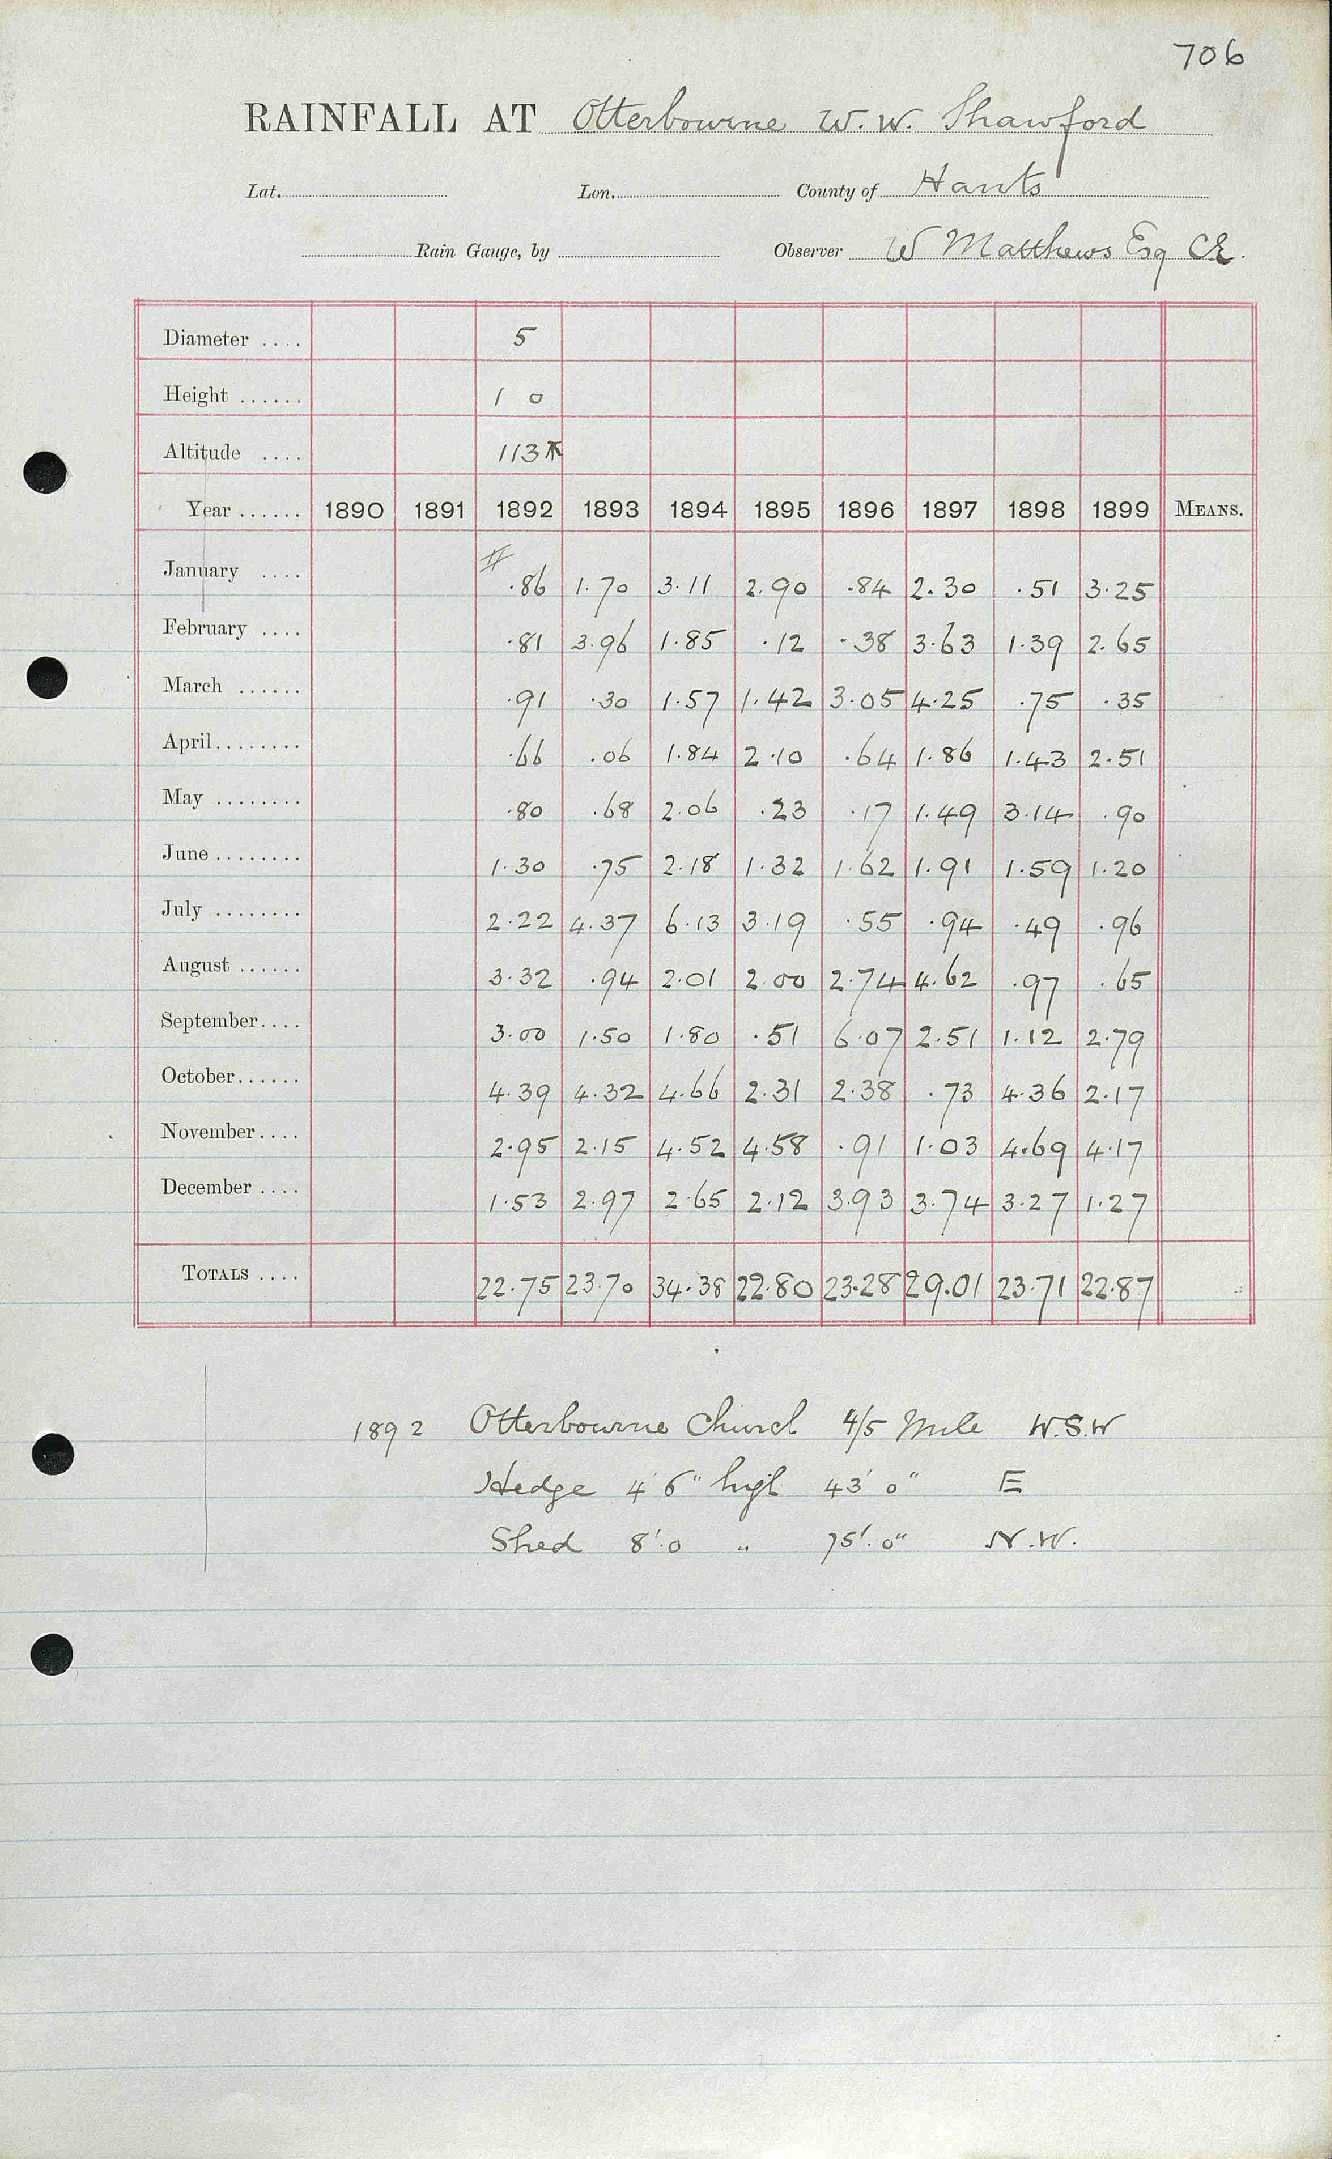 706
RAINFALL AT Otterbourne W.W. Shawford
Lat. Lon. County of Hants
Rain Gauge, by Observer W Matthews Esq CE.
Diameter .... 5
Height ...... 1 0
Altitude .... 113
Year ...... 1890 1891 1892 1893 1894 1895 1896 1897 1898 1899 MEANS.
January .... # .86 1.70 3.11 2.90 .84 2.30 .51 3.25
February .... .81 3.96 1.85 .12 .38 3.63 1.39 2.65
March ...... .91 .30 1.57 1.42 3.05 4.25 .75 .35
April........ .66 .06 1.84 2.10 .64 1.86 1.43 2.51
May ........ .80 .68 2.06 .23 .17 1.49 3.14 .90
June ........ 1.30 .75 2.18 1.32 1.62 1.91 1.59 1.20
July ........ 2.22 4.37 6.13 3.19 .55 .94 .49 .96
August ...... 3.32 .94 2.01 2.00 2.74 4.62 .97 .65
September.... 3.00 1.50 1.80 .51 6.07 2.51 1.12 2.79
October...... 4.39 4.32 4.66 2.31 2.38 .73 4.36 2.17
November.... 2.95 2.15 4.52 4.58 .91 1.03 4.69 4.17
December .... 1.53 2.97 2.65 2.12 3.93 3.74 3.27 1.27
TOTALS .... 22.75 23.70 34.38 22.80 23.28 29.01 23.71 22.87
1892 Otterbourne Church 4/5 Mile W.S.W
Hedge 4'6" high 43'0" E
Shed 8'.0 " 75'.0" N.W.